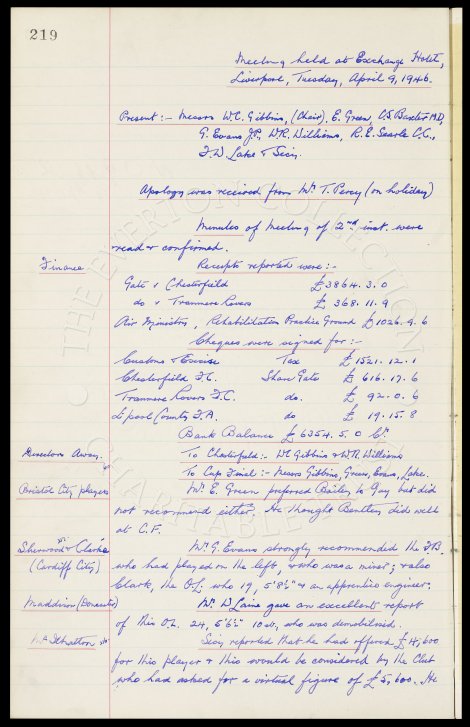 219
Meeting held at Exchange Hotel,
Liverpool, Tuesday, April 9, 1946.
Present :- Messrs W.C. Gibbins, (Chair), E. Green, C.S. Baxter M.D,
G. Evans J.P., W.R. Williams, R.E. Searle C.C.,
F.W. Lake & Secy.
Apology was received from Mr T. Percy (on holiday)
Minutes of Meeting of 2nd inst. were
read & confirmed.
Finance
Receipts reported were :-
Gate v Chesterfield £3864. 3. 0
do v Tranmere Rovers £ 368. 11. 9
Air Ministry, Rehabilitation Practice Ground £1026. 9. 6
Cheques were signed for :-
Customs & Excise Tax £ 1521. 12. 1
Chesterfield F.C. Share Gate £ 616. 17. 6
Tranmere Rovers F.C. do. £ 92. 0. 6
L'pool County F.A. do £ 19. 15. 8
Bank Balance £6354. 5. 0 Cr
Directors Away.
To Chesterfield :- WC Gibbins & W.R. Williams
To Cup Final :- Messrs Gibbins, Green, Evans, Lake.
Bristol City players
Mr. E. Green preferred Bailey to Guy but did
not recommend either. He thought Bentley did well
at C.F.
Sherwood & Clarke
(Cardiff City)
Mr. G. Evans strongly recommended the F.B.
who had played on the left, & who was a miner; & also
Clark, the O.L. who 19, 5'8½" & an apprentice engineer.
Maddison (Doncaster)
Mr. D Laine gave an excellent report
of this O.L. 24, 5'6½" 10st, who was demobilised.
Secy. reported that he had offered £4,600
for this player & this would be considered by the Club
who had asked for a virtual figure of £5,600. He
THE EVERTON COLLECTION
CHARITABLE